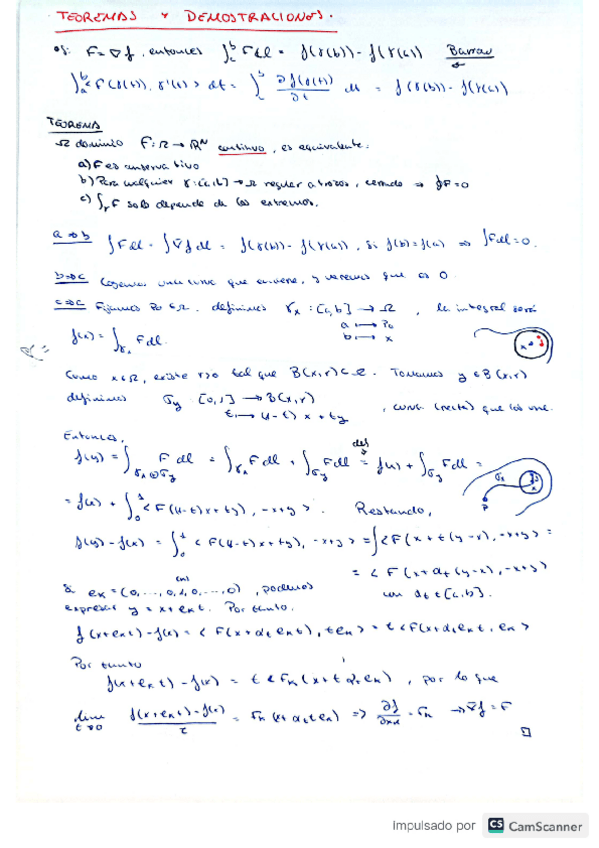 TEOREMAS Y DEMOSTRACIONES.
Si F = ∇f, entonces ∫_a^b F dl = f(γ(b)) - f(γ(a)) Barrow
∫_a^b <F(γ(t)), γ'(t)> dt = ∫_a^b ∂f(γ(t))/∂t dt = f(γ(b)) - f(γ(a))
TEOREMA
Ω dominio F: Ω → R^N continuo, es equivalente:
a) F es conservativo
b) Para cualquier γ: [a,b] → Ω regular a trozos, cerrado ⇒ ∫F = 0
c) ∫_γ F solo depende de los extremos.
a ⇒ b ∫F dl = ∫∇f dl = f(γ(b)) - f(γ(a)), si f(b) = f(a) ⇒ ∫F dl = 0.
b ⇒ c Cogemos una curva que , y veremos que es 0.
Fijamos P0 ∈ Ω. definimos γx : [a,b] → Ω , la integral será
a ↦ P0
b ↦ x
f(x) = ∫_γx F dl.
Como x ∈ Ω, existe r>0 tal que B(x,r) ⊂ Ω. Tomamos y ∈ B(x,r)
definimos σy : [0,1] → B(x,r)
t ↦ (1-t)x + ty , curva (recta) que los une.
Entonces, def
f(y) = ∫_γx⊕σy F dl = ∫_γx F dl + ∫_σy F dl = f(x) + ∫_σy F dl =
= f(x) + ∫_0^1 <F((1-t)x+ty), -x+y>. Restando,
f(y) - f(x) = ∫_0^1 <F((1-t)x+ty), -x+y> = ∫<F(x+t(y-x)), -x+y> =
= <F(x+αt(y-x)), -x+y>
con αt ∈ [a,b].
Si ek = (0,...,0,1,0,...,0), podemos
expresar y = x + ek t. Por tanto,
f(x+ek t) - f(x) = <F(x+αt ek t), t ek> = t <F(x+αt ek t, ek>
Por tanto
f(x+ek t) - f(x) = t Fk(x+t αt ek), por lo que
lim t→0 f(x+ek t) - f(x) / t = Fk(x+αt t ek) ⇒ ∂f/∂xk = Fk ⇒ ∇f = F
Impulsado por CS CamScanner